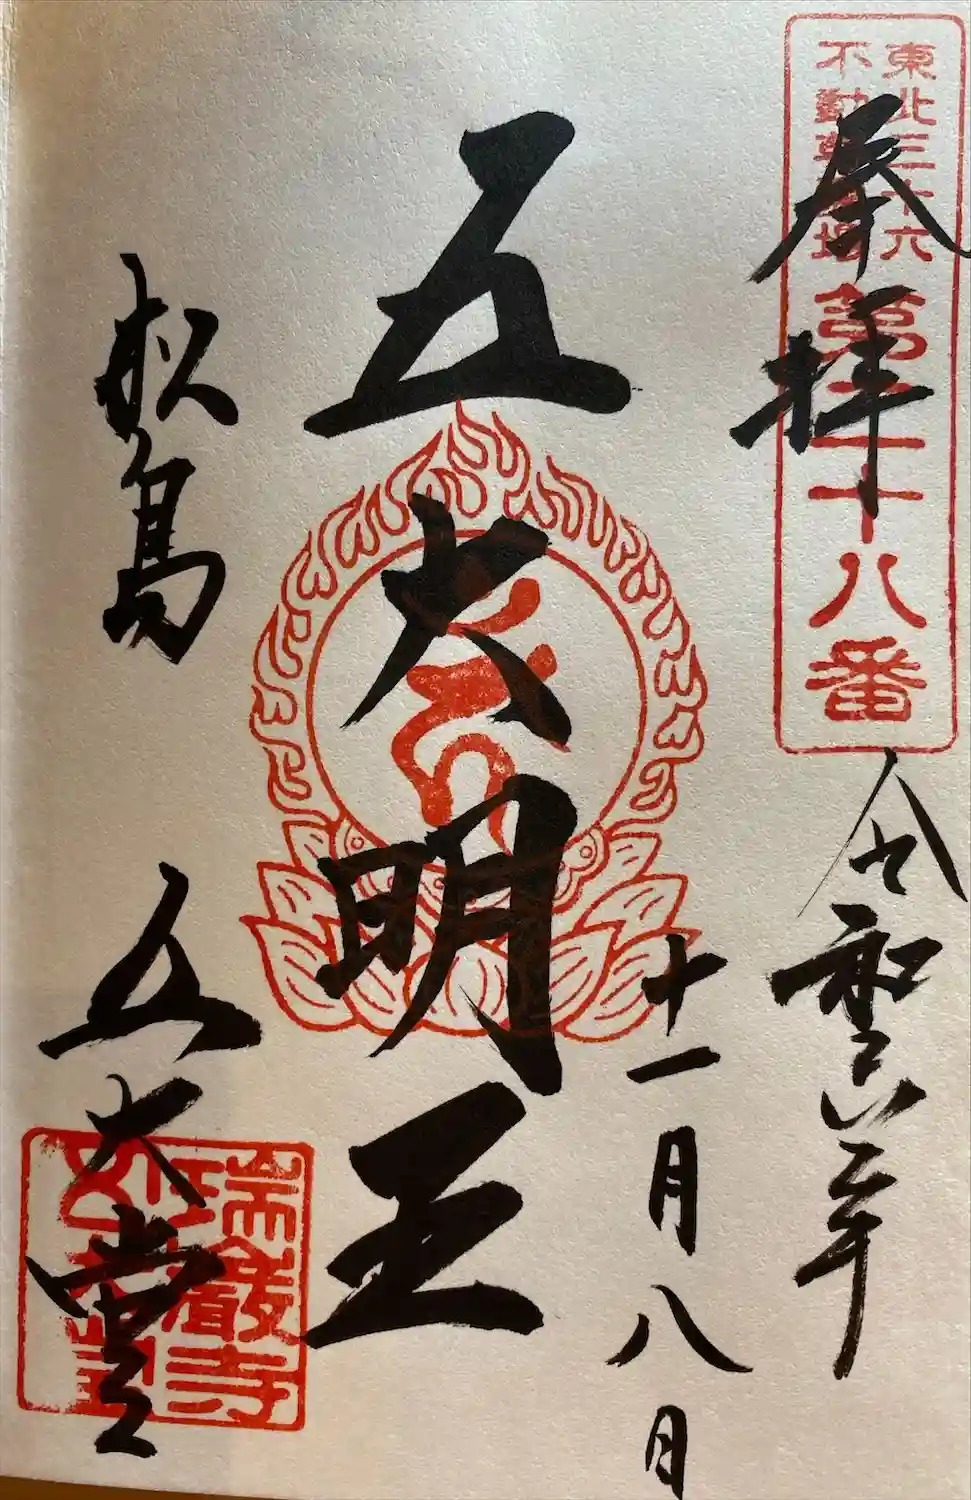 東北三十六
不動尊霊場
第二十八番
奉拝
令和六年
十一月八日
五大明王
松島
五大堂
瑞巖寺